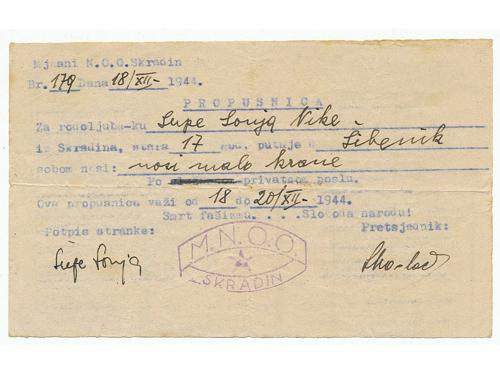 Mjesni N.O.O. Skradin
Br. 179 Dana 18/XII- 1944.
PROPUSNICA
Za rodoljuba-ku Supe Sonja Nike-
iz Skradina, stara 17 god. putuje u Šibenik
sobom nosi: nosi malo hrane
Po privatnom poslu.
Ova propusnica važi od 18 do 20/XII- 1944.
Smrt fašizmu. . . .Sloboda narodu!
Potpis stranke: Pretsjednik:
Supe Sonja
M.N.O.O.
SKRADIN